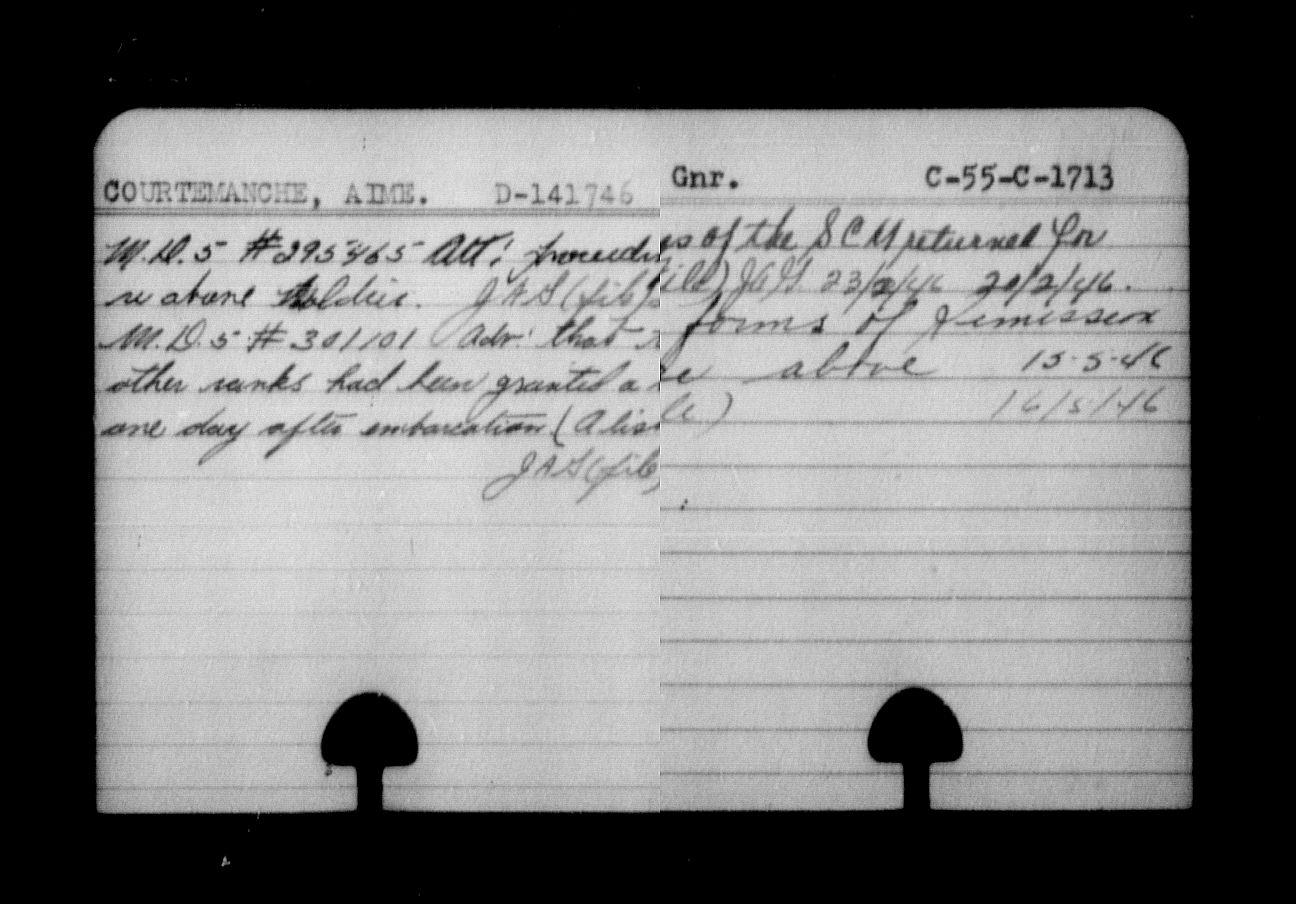 COURTEMANCHE, AIME. D-141746 Gnr. C-55-C-1713
M.D.5 #295465 Att: of the SCM returned for
re above soldier. JAG (file) JAG 23/2/46 20/2/46.
M.D.5 #301101 Adv: that forms of Remission
other ranks had been granted a above 15-5-46
one day after embarcation (A list 16/5/46
JAG (file)